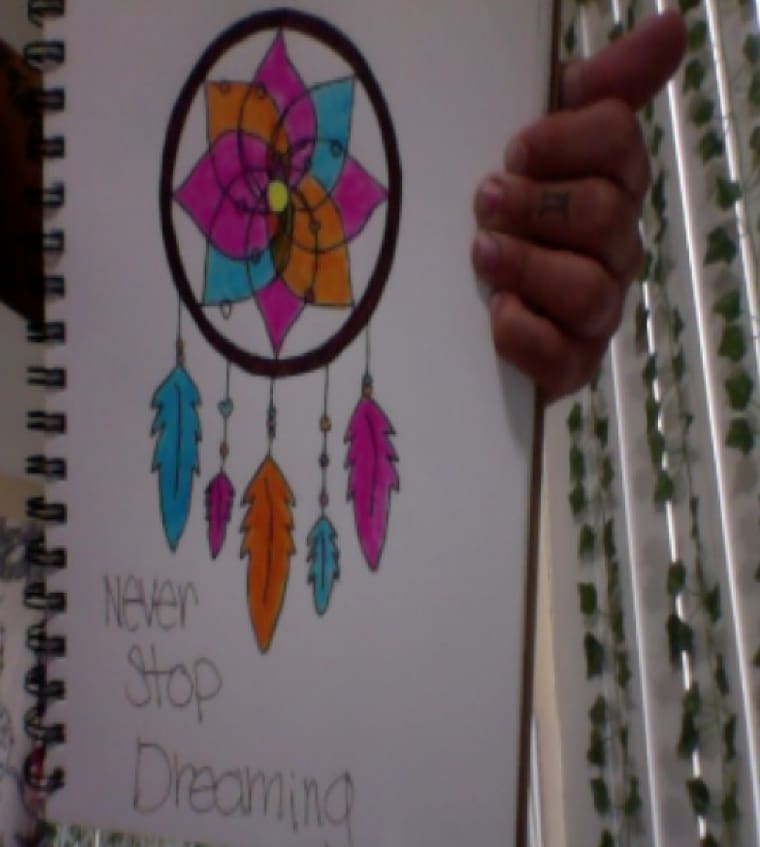 Never
Stop
Dreaming